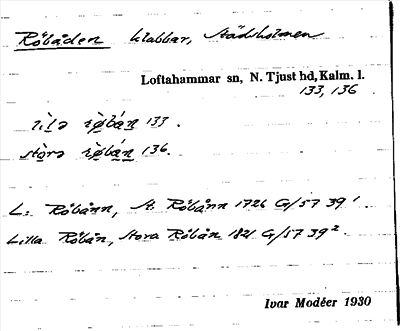 Röbåden klabbar, Städsholmen
Loftahammar sn, N. Tjust hd, Kalm. l.
133, 136
lìlə rö̀bán 133.
stòrə rö̀bán 136.
L: Röbånn, St Röbånn 1726 G/57 39¹.
Lilla Röbån, Stora Röbån 1821 G/57 39².
Ivar Modéer 1930